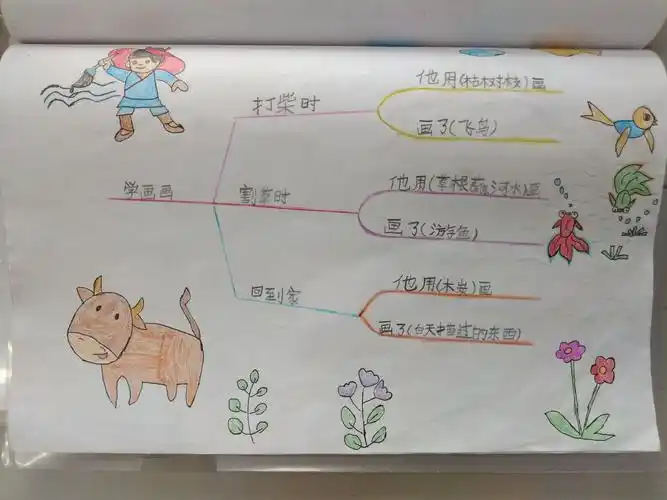 学画画
打柴时
他用(枯树枝)画
画了(飞鸟)
割草时
他用(草根蘸河水)画
画了(游鱼)
回到家
他用(木炭)画
画了(白天画过的东西)